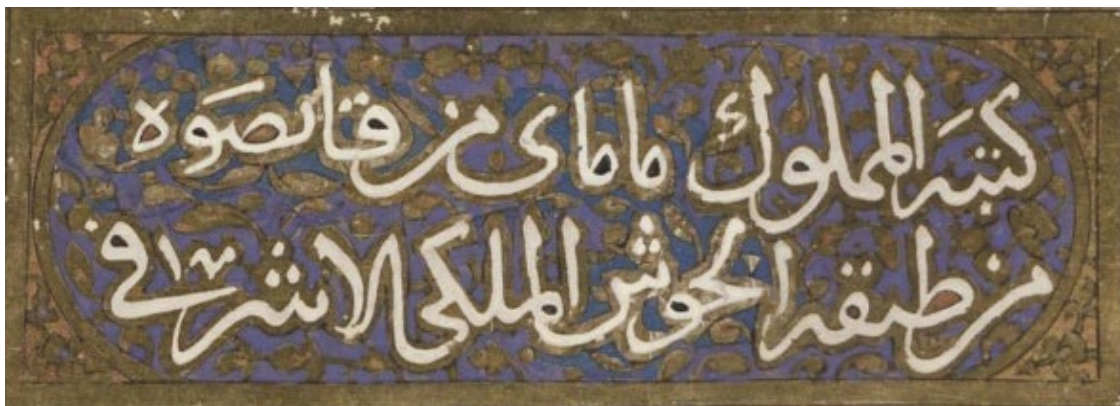 كتبه المملوك ماماى من قانصوه
من طبقه الحوش الملكى الاشرفى